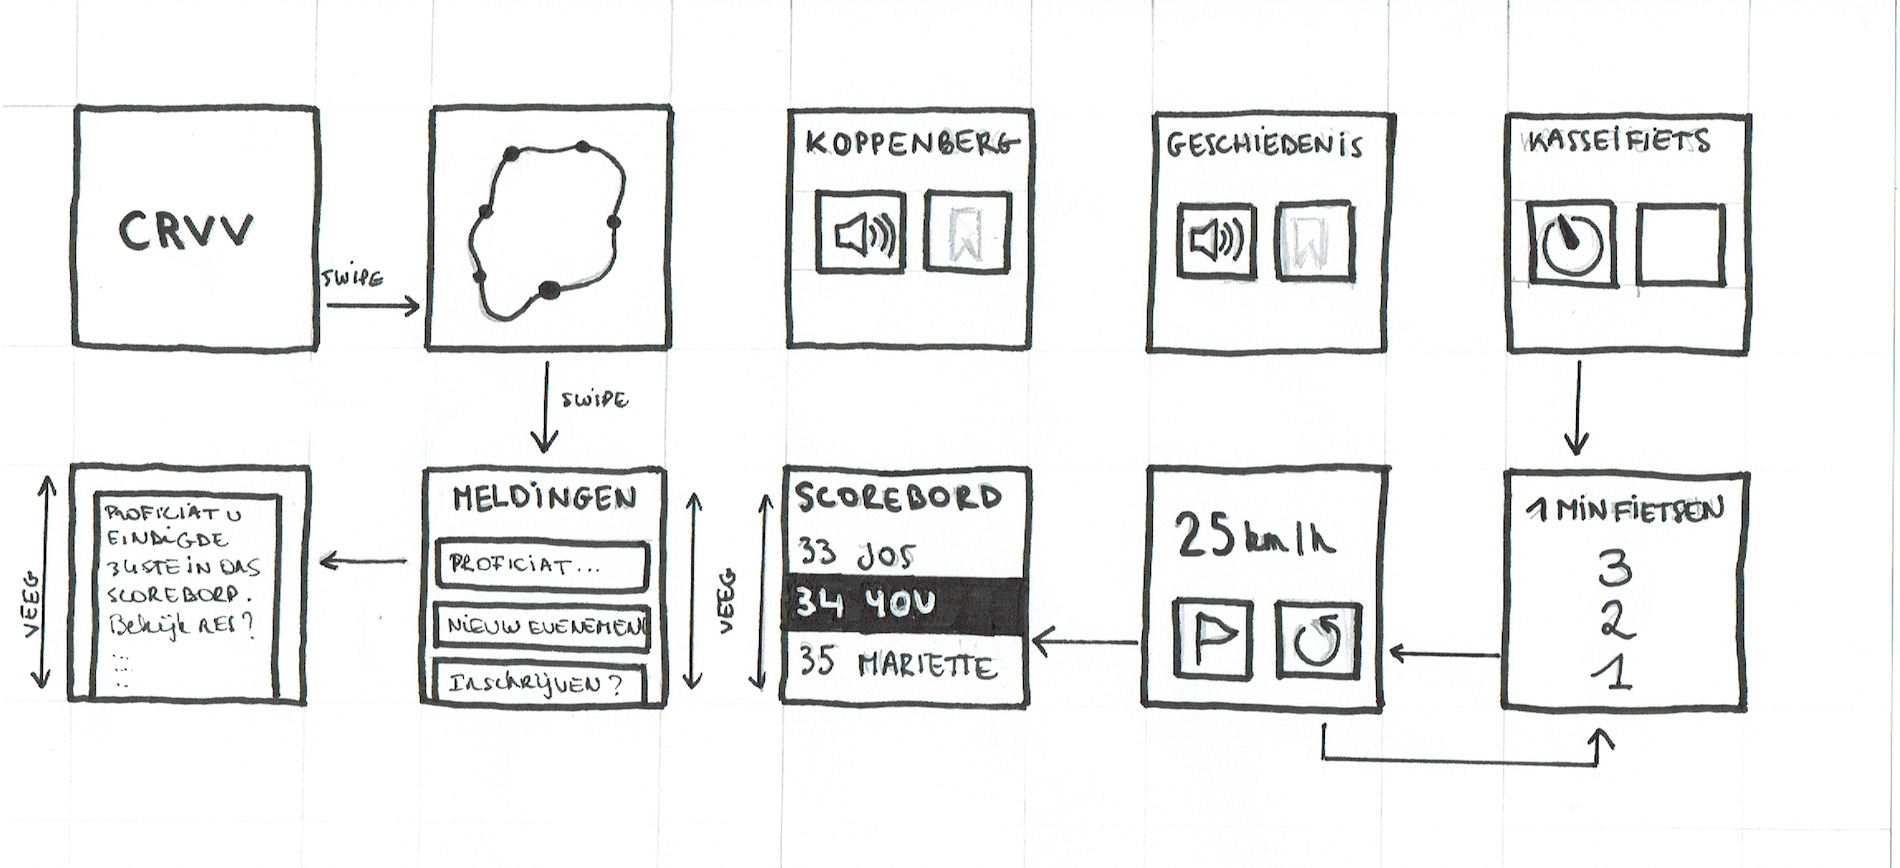 CRVV
SWIPE
SWIPE
KOPPENBERG
GESCHIEDENIS
KASSEIFIETS
VEEG
PROFICIAT U
EINDIGDE
34STE IN DAS
SCOREBORD.
Bekijk
MELDINGEN
PROFICIAT...
NIEUW EVENEMEN
INSCHRIJVEN?
VEEG
SCOREBORD
33 JOS
34 YOU
35 MARIETTE
25 km/h
1 MIN FIETSEN
3
2
1